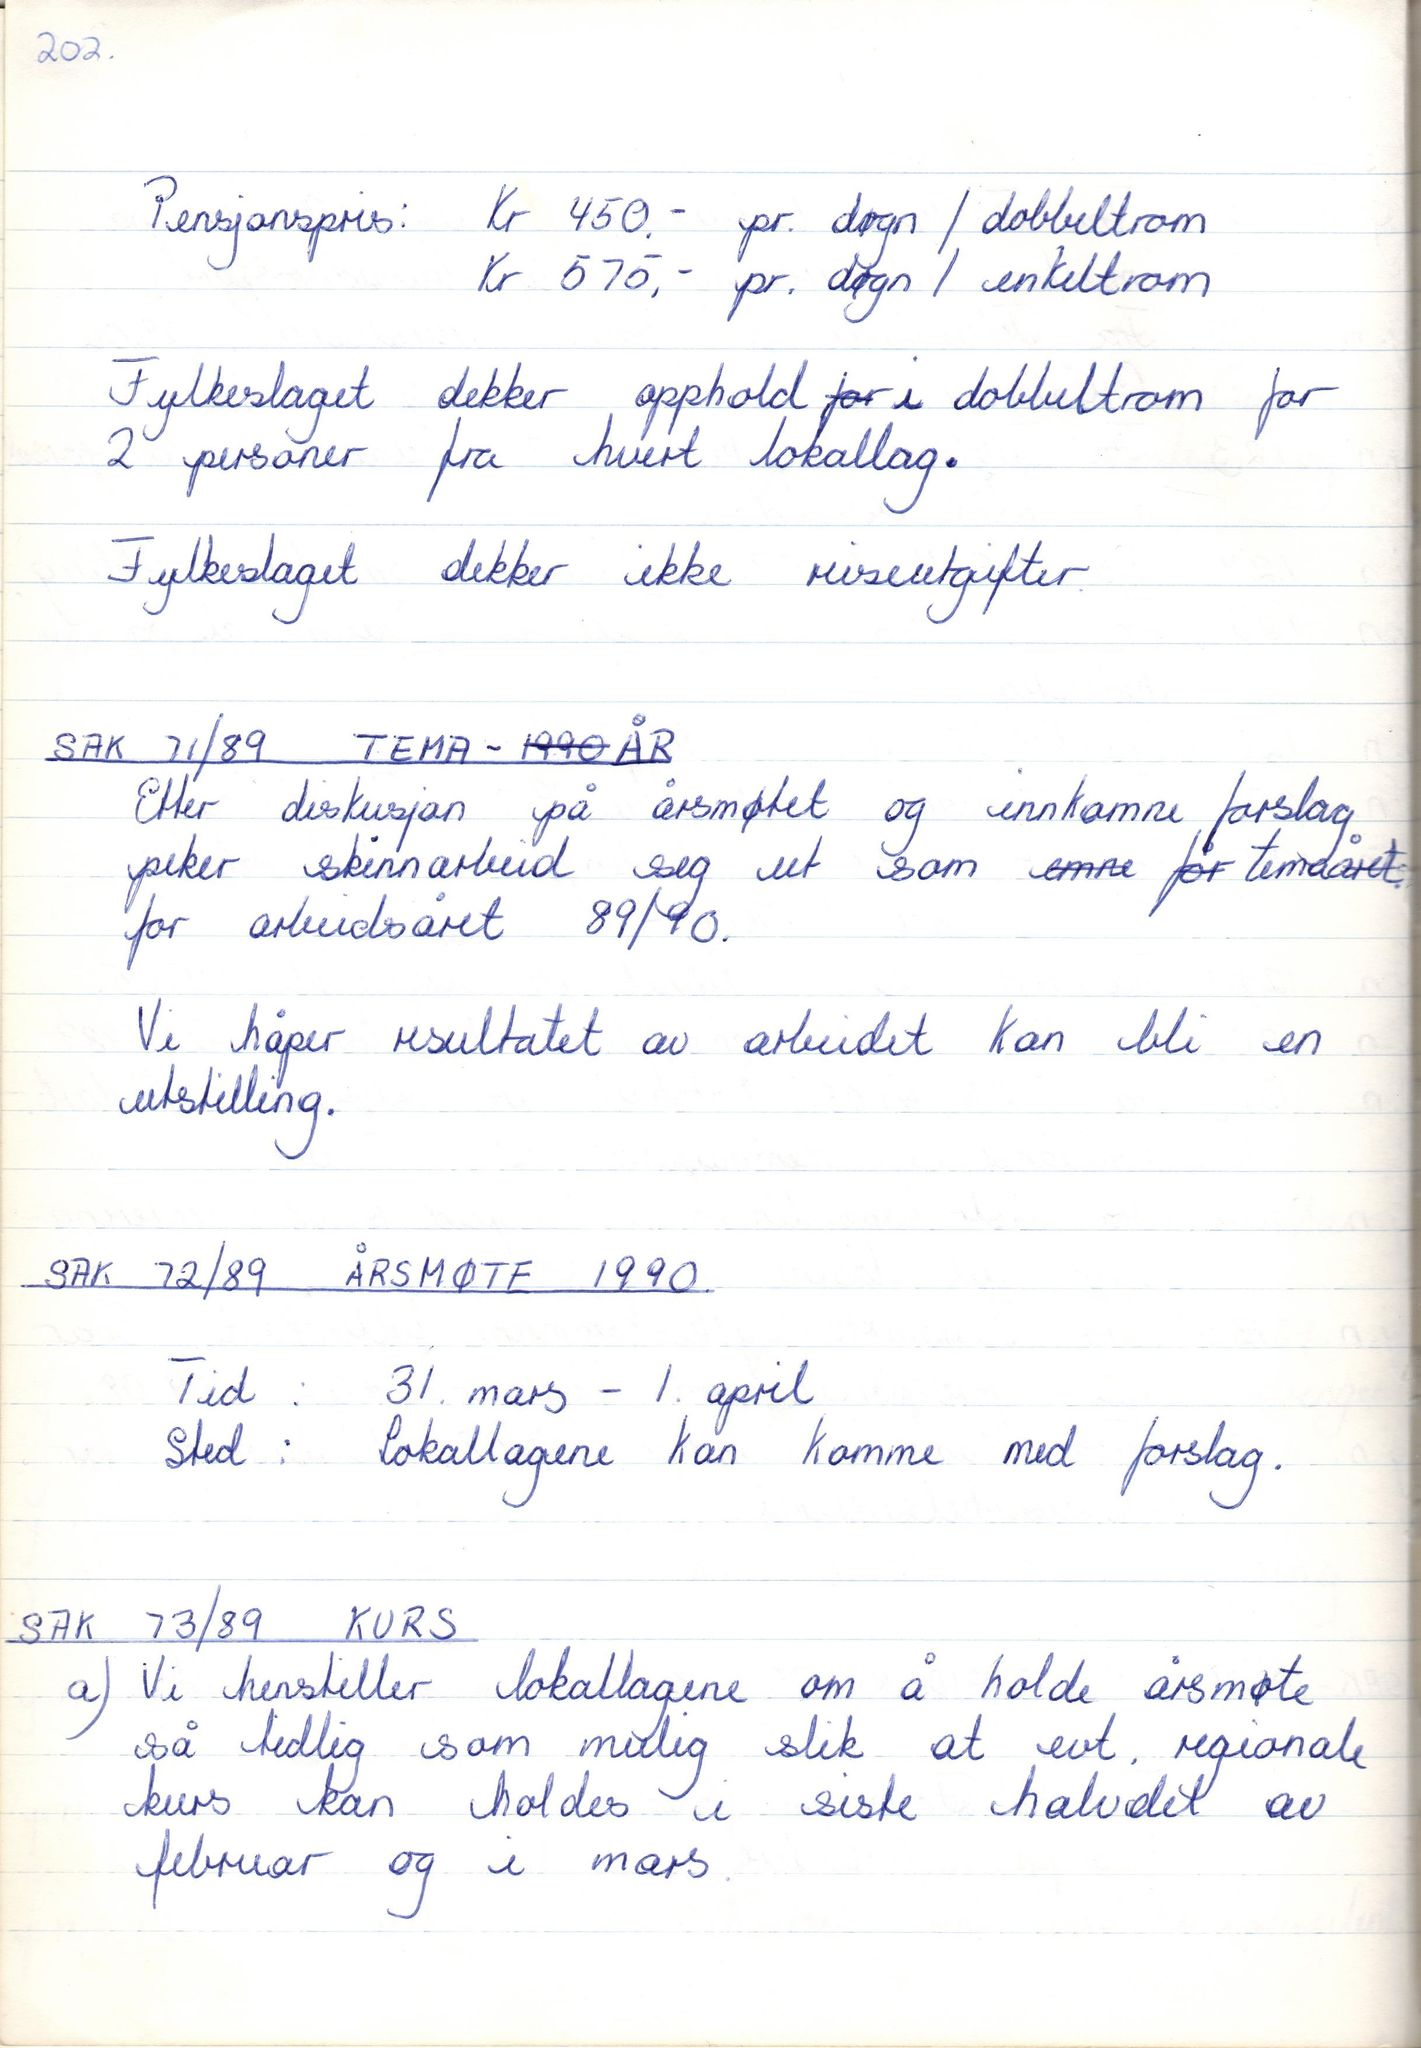 202.
Pensjonspris: Kr 450.- pr. døgn / dobbeltrom
Kr 575,- pr. døgn / enkeltrom
Fylkeslaget dekker opphold for i dobbeltrom for
2 personer fra hvert lokallag.
Fylkeslaget dekker ikke reiseutgifter.
SAK 71/89 TEMA - 1990 ÅR
Etter diskusjon på årsmøtet og innkomne forslag
peker skinnarbeid seg ut som emne for temaåret.
for arbeidsåret 89/90.
Vi håper resultatet av arbeidet kan bli en
utstilling.
SAK 72/89 ÅRSMØTE 1990.
Tid : 31. mars - 1. april
Sted : Lokallagene kan komme med forslag.
SAK 73/89 KURS
a) Vi henstiller lokallagene om å holde årsmøte
så tidlig som mulig slik at evt. regionale
kurs kan holdes i siste halvdel av
februar og i mars.